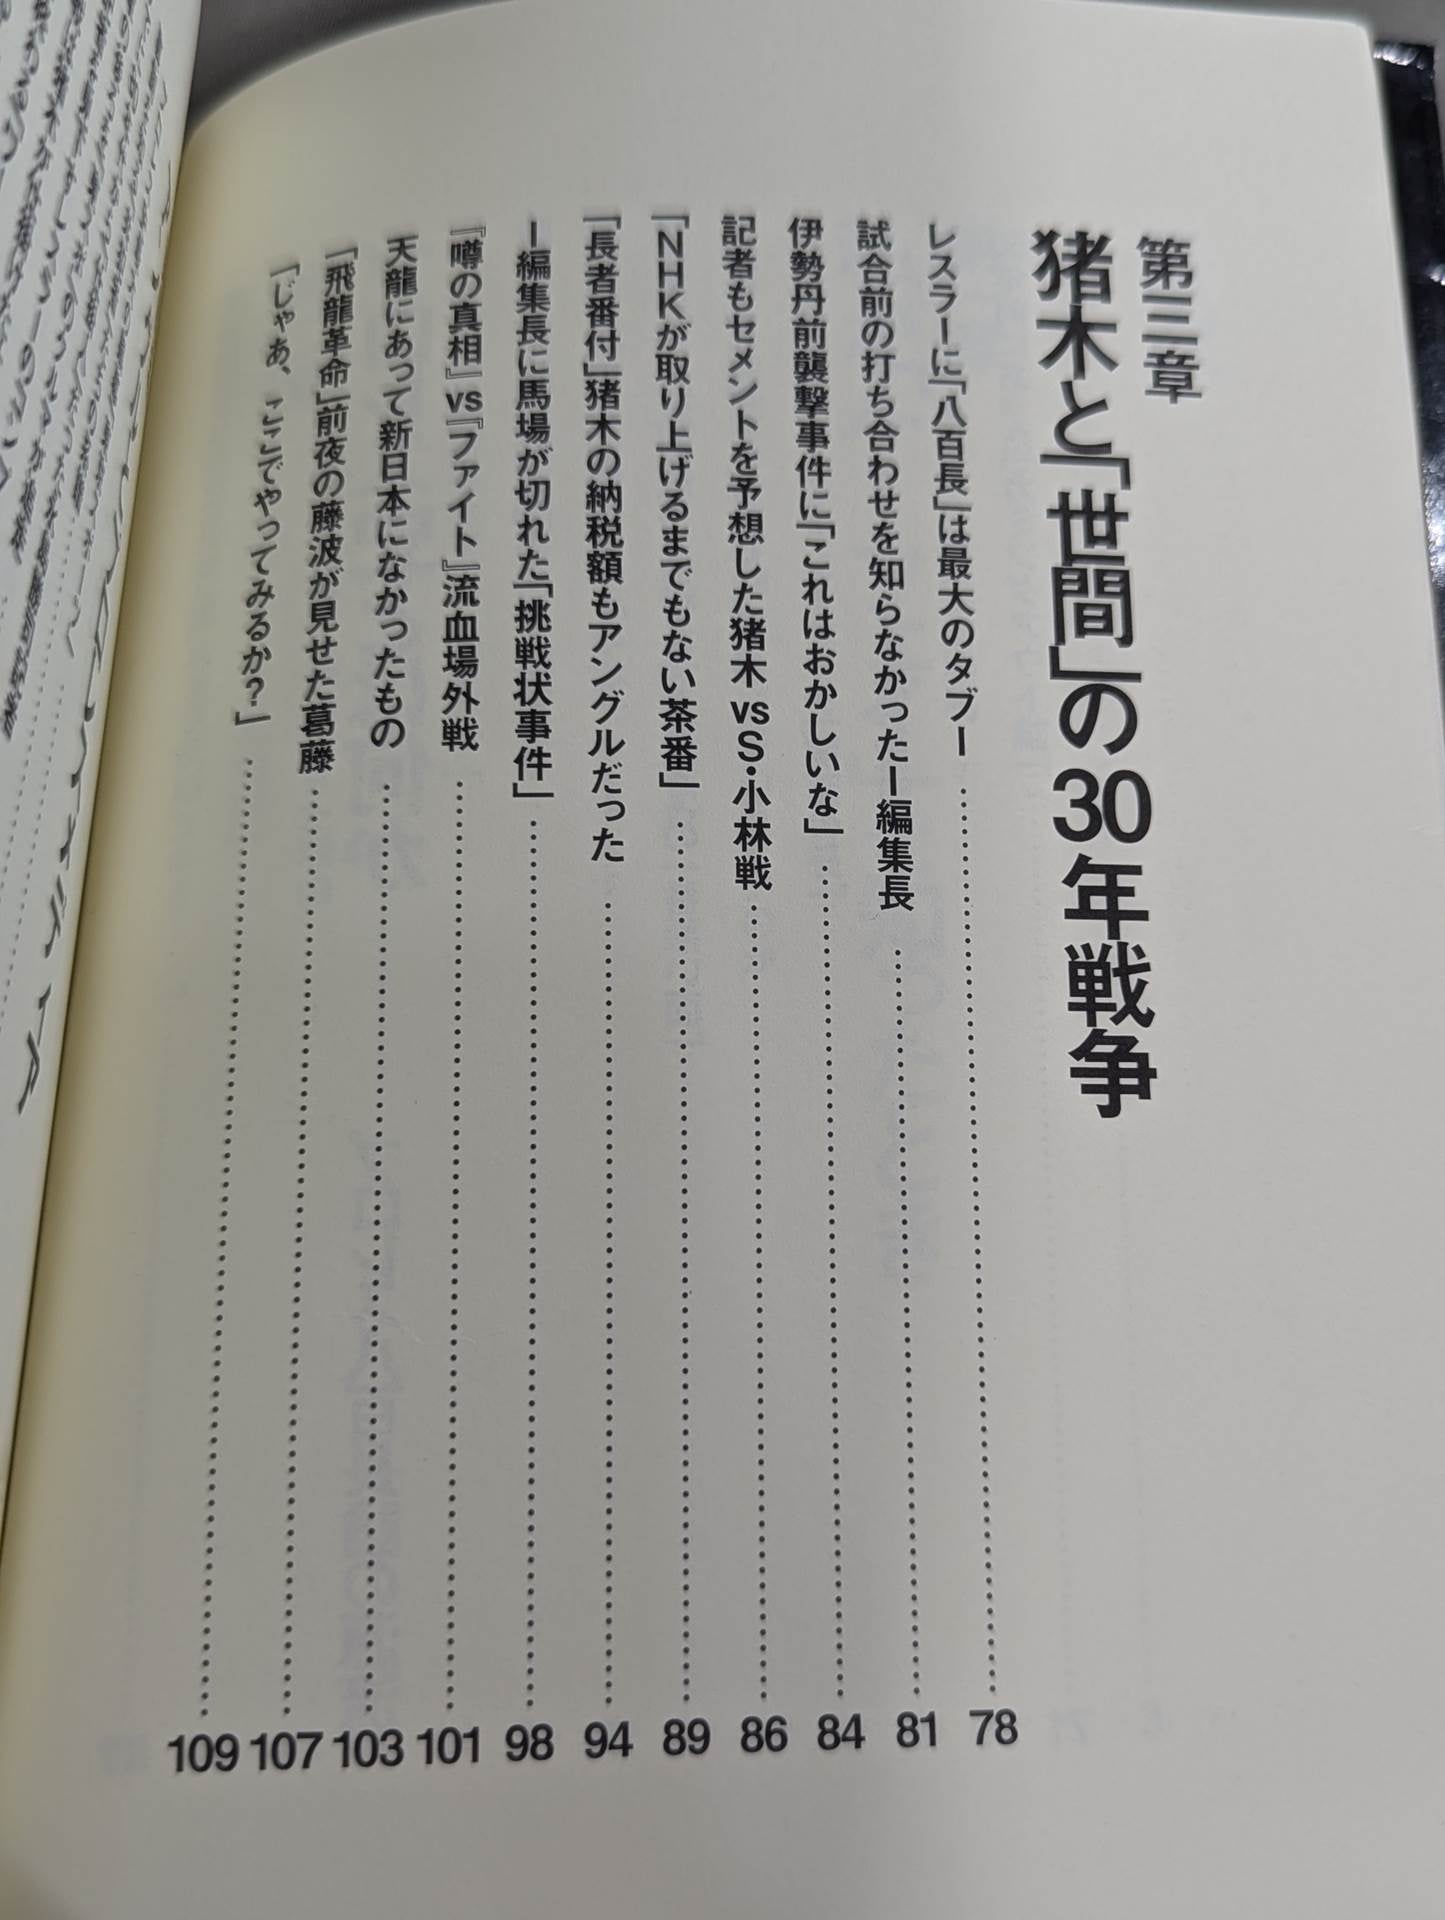 第三章
猪木と「世間」の30年戦争
レスラーに「八百長」は最大のタブー…………78
試合前の打ち合わせを知らなかったI編集長…………81
伊勢丹前襲撃事件に「これはおかしいな」…………84
記者もセメントを予想した猪木vsS・小林戦…………86
「NHKが取り上げるまでもない茶番」…………89
「長者番付」猪木の納税額もアングルだった…………94
I編集長に馬場が切れた「挑戦状事件」…………98
『噂の真相』vs『ファイト』流血場外戦…………101
天龍にあって新日本になかったもの…………103
「飛龍革命」前夜の藤波が見せた葛藤…………107
「じゃあ、ここでやってみるか?」…………109